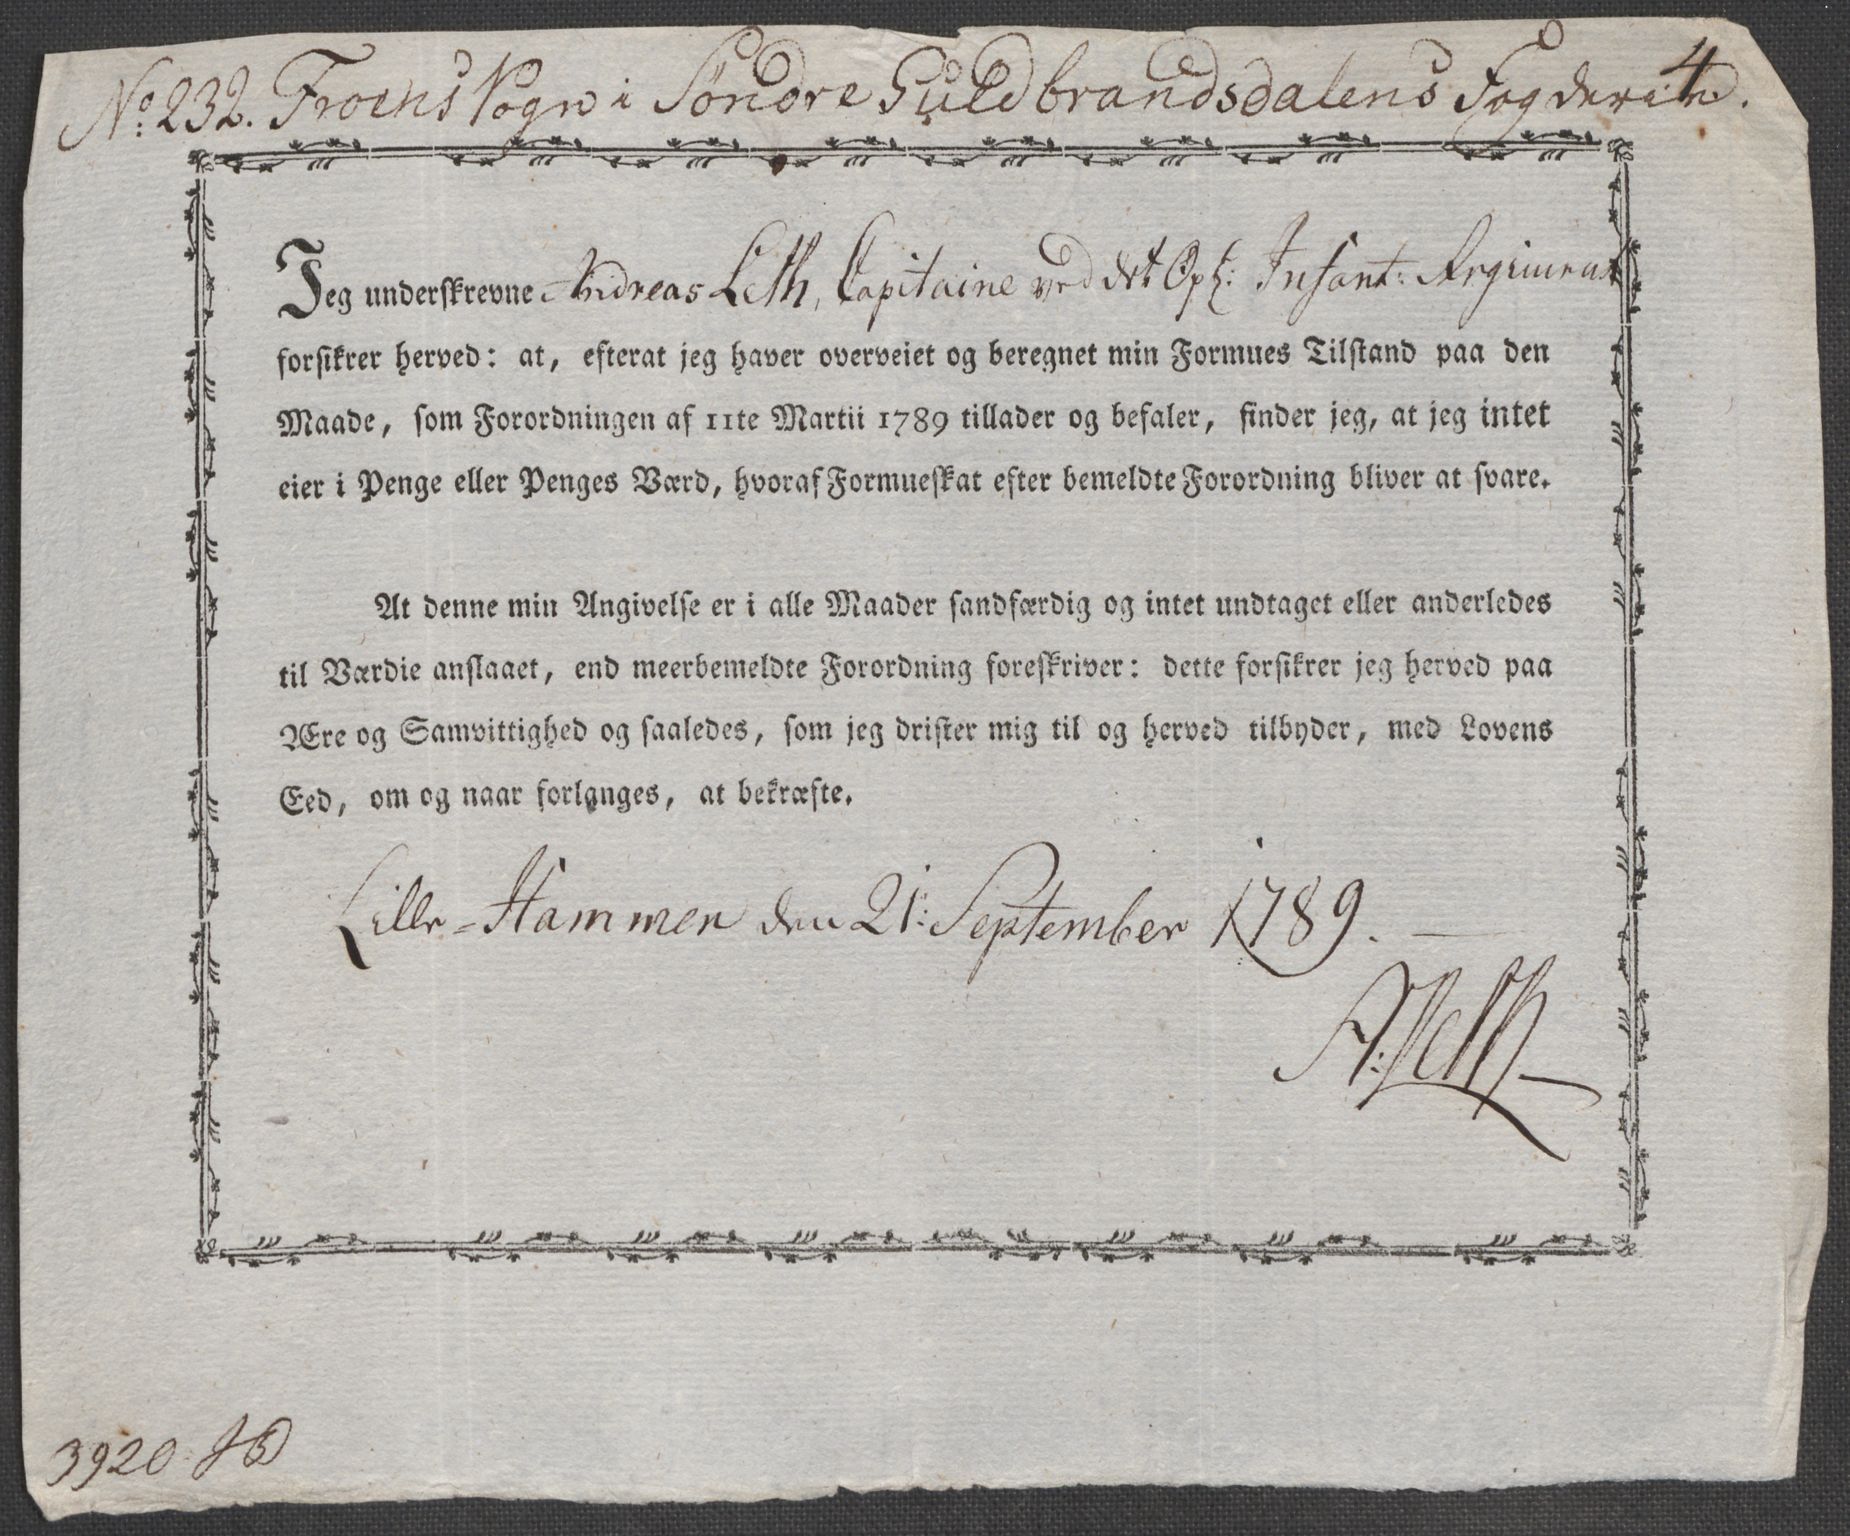 No: 232. Froens Sogn i Söndre Guldbrandsdalens Fogderie.
4
Jeg underskrevne Andreas Leth, Capitaine ved det Opl: Infant: Regiment
forsikrer herved: at, efterat jeg haver overveiet og beregnet min Formues Tilstand paa den
Maade, som Forordningen af 11te Martii 1789 tillader og befaler, finder jeg, at jeg intet
eier i Penge eller Penges Værd, hvoraf Formueskat efter bemeldte Forordning bliver at svare.
At denne min Angivelse er i alle Maader sandfærdig og intet undtaget eller anderledes
til Værdie anslaaet, end meerbemeldte Forordning foreskriver: dette forsikrer jeg herved paa
Ære og Samvittighed og saaledes, som jeg drister mig til og herved tilbyder, med Lovens
Eed, om og naar forlanges, at bekræfte.
Lille-Hammer den 21: September 1789.
A: Leth
3920